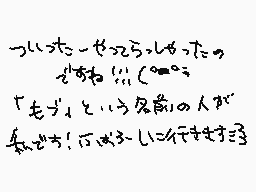 ついったーやってらっしゃったの
ですね!!!(°▫°=
「もづ」という名前の人が
私です!ふぉろーしに行きますミ3